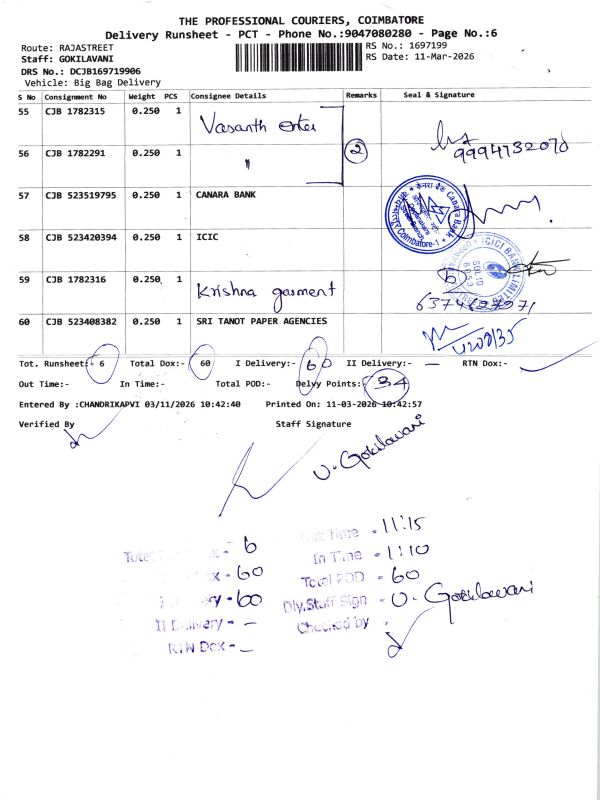 THE PROFESSIONAL COURIERS, COIMBATORE
Delivery Runsheet - PCT - Phone No.:9047080280 - Page No.:6
Route: RAJASTREET
RS No.: 1697199
Staff: GOKILAVANI
RS Date: 11-Mar-2026
DRS No.: DCJB169719906
Vehicle: Big Bag Delivery
S No Consignment No Weight PCS Consignee Details Remarks Seal & Signature
55 CJB 1782315 0.250 1 Vasanth enter
56 CJB 1782291 0.250 1 " 2 9994732070
57 CJB 523519795 0.250 1 CANARA BANK
केनरा बैंक Canara Bank
Coimbatore-1
58 CJB 523420394 0.250 1 ICIC
ICICI BANK LIMITED
59 CJB 1782316 0.250 1 Krishna garment
60 CJB 523408382 0.250 1 SRI TANOT PAPER AGENCIES
Tot. Runsheet:- 6 Total Dox:- 60 I Delivery:- 60 II Delivery:- — RTN Dox:-
Out Time:- In Time:- Total POD:- Delvy Points:- 34
Entered By :CHANDRIKAPVI 03/11/2026 10:42:40 Printed On: 11-03-2026 10:42:57
Verified By Staff Signature
U. Gokilavani
Out Time - 11:15
- 6 In Time - 1:10
- 60 Total POD - 60
- 60 Dly.Staff Sign - U. Gokilavani
II Delivery - — Checked by
RTN Dox - —